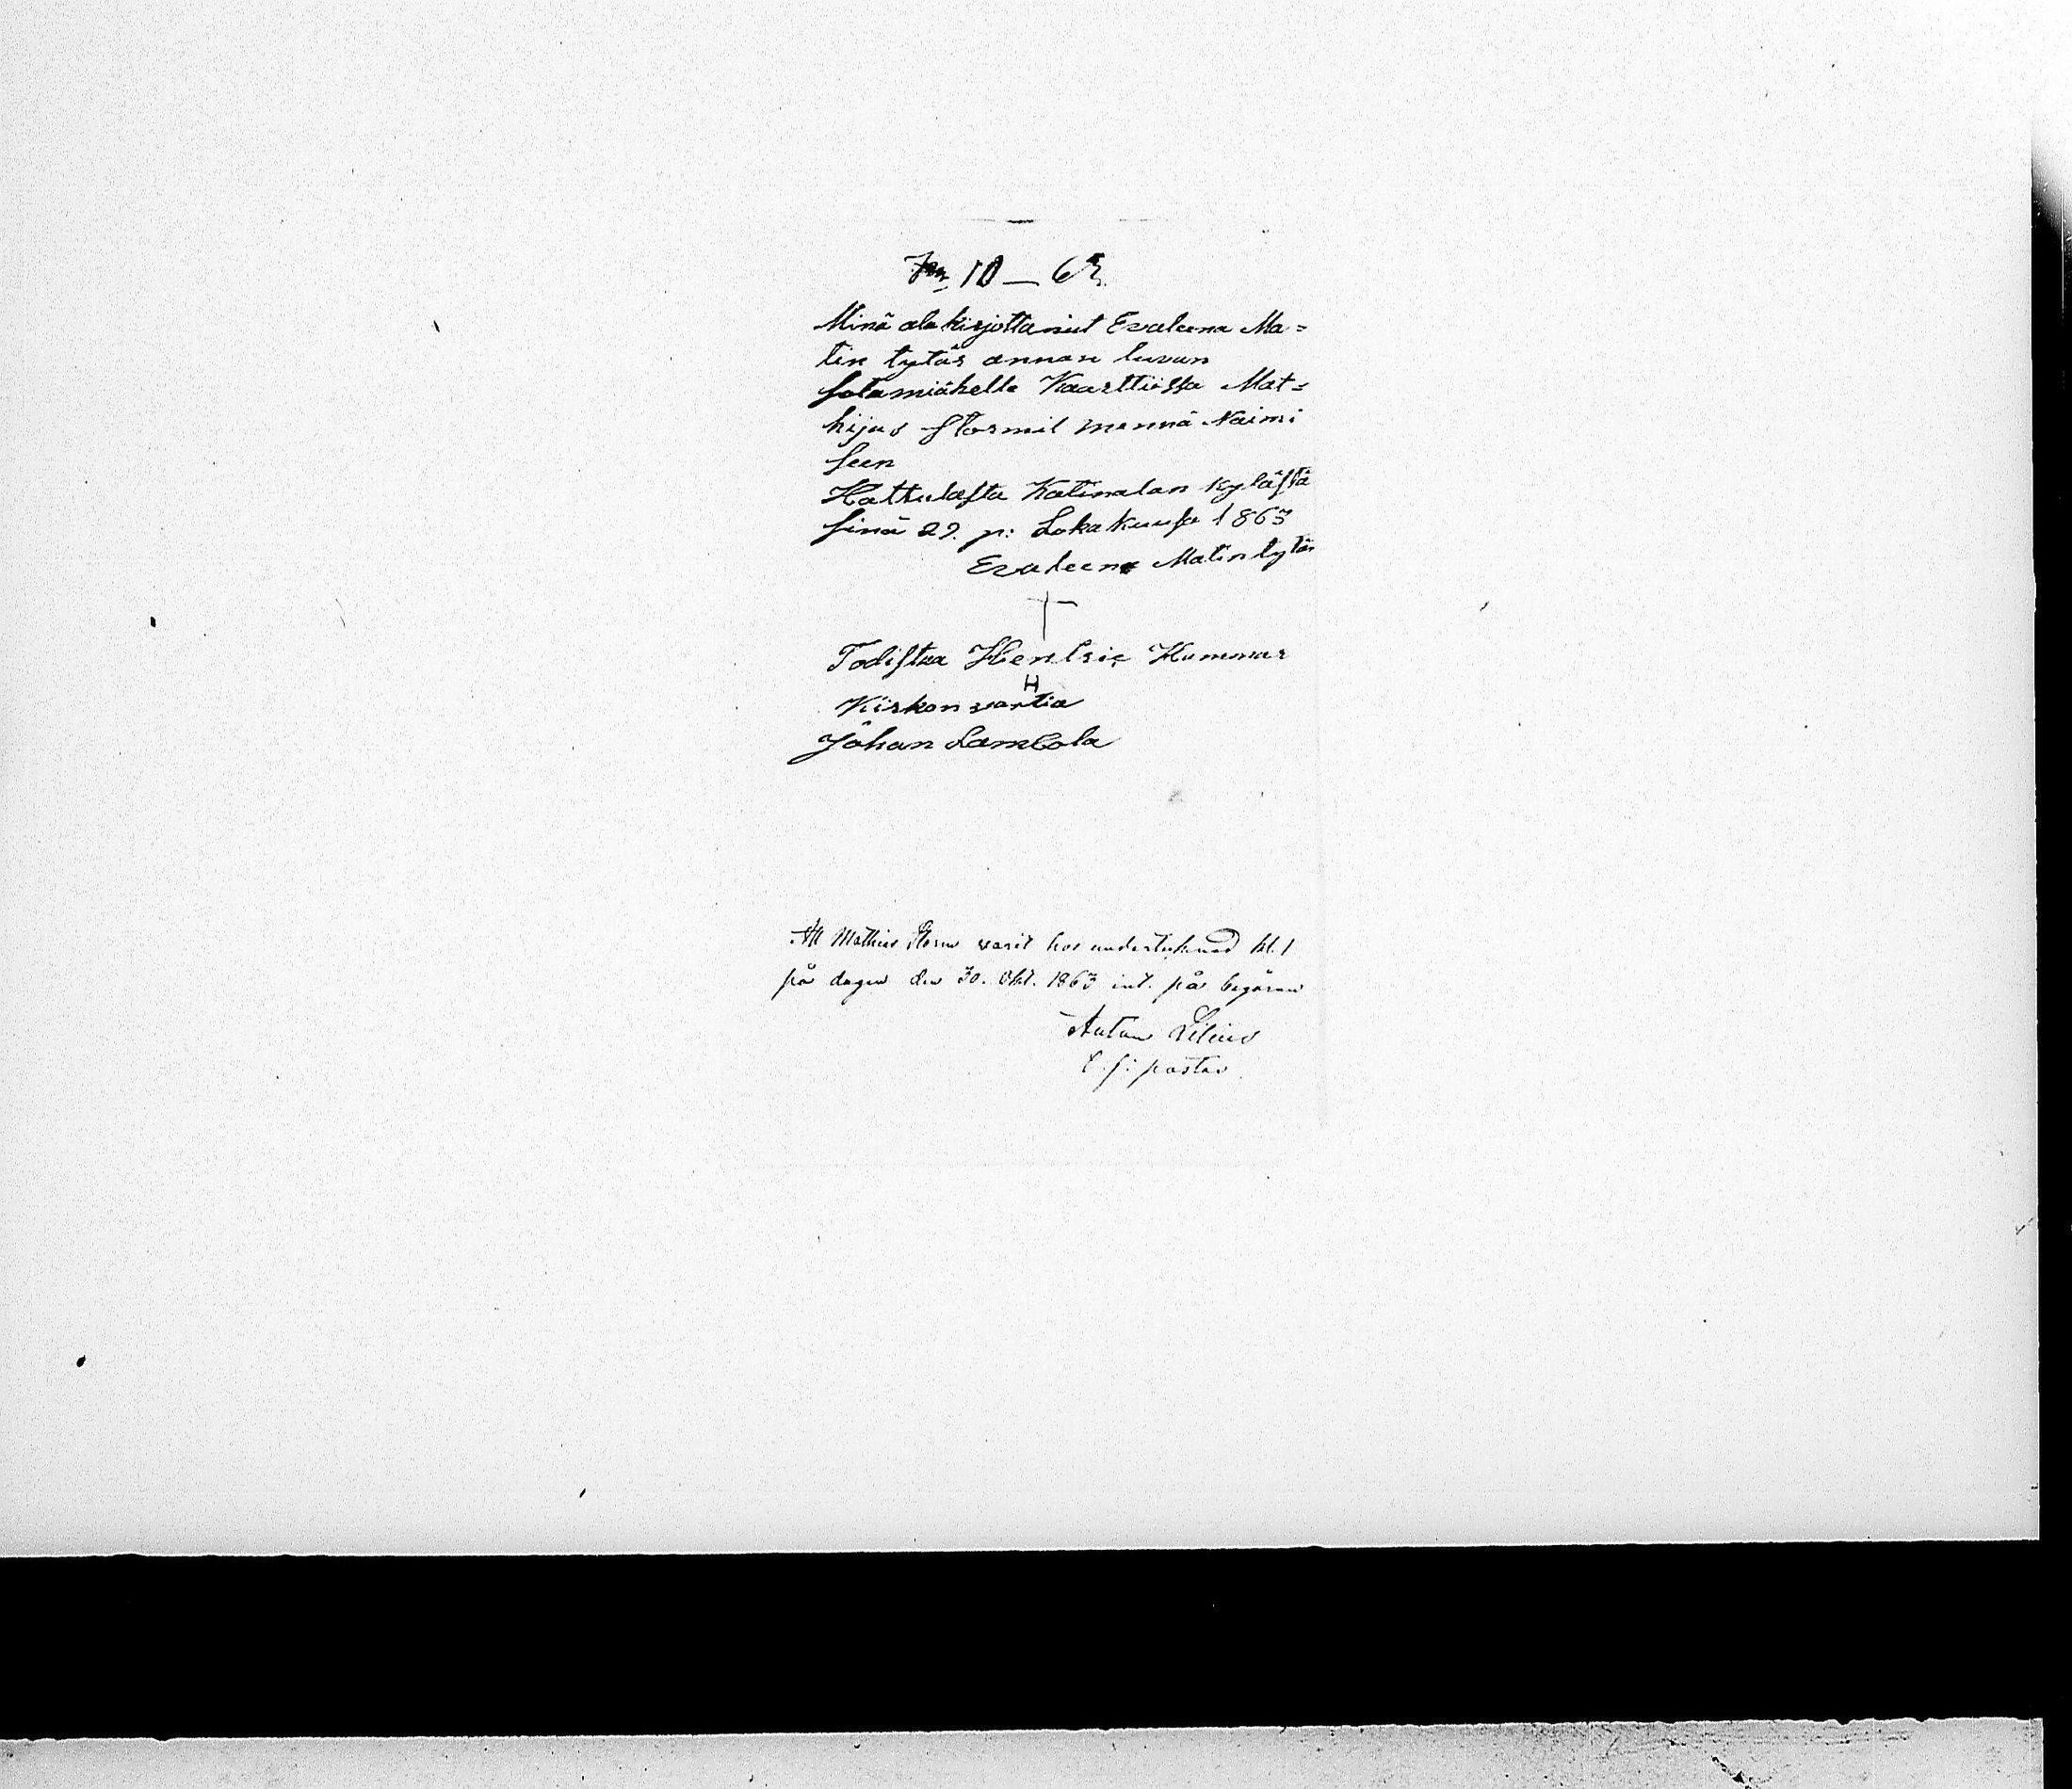 10 — 63
Minä ala kirjottanut Evaleena Ma=
tin tytär annan luvan
sotamiähelle Kaarttiissa Mat=
hijas Stormil mennä Naimi
seen
Hattulasta Katinalan kylästä
sinä 29. p: Lokakuusa 1863
Evaleena Matin tytär
Todistaa Henlric Hummar
H
Kirkon vartia
Johan Lambola
Att Mathias Storm varit hos undertecknad kl. 1
på dagen den 30. Okt. 1863 int. på begäran
Anton Lilius
E. f: pastor